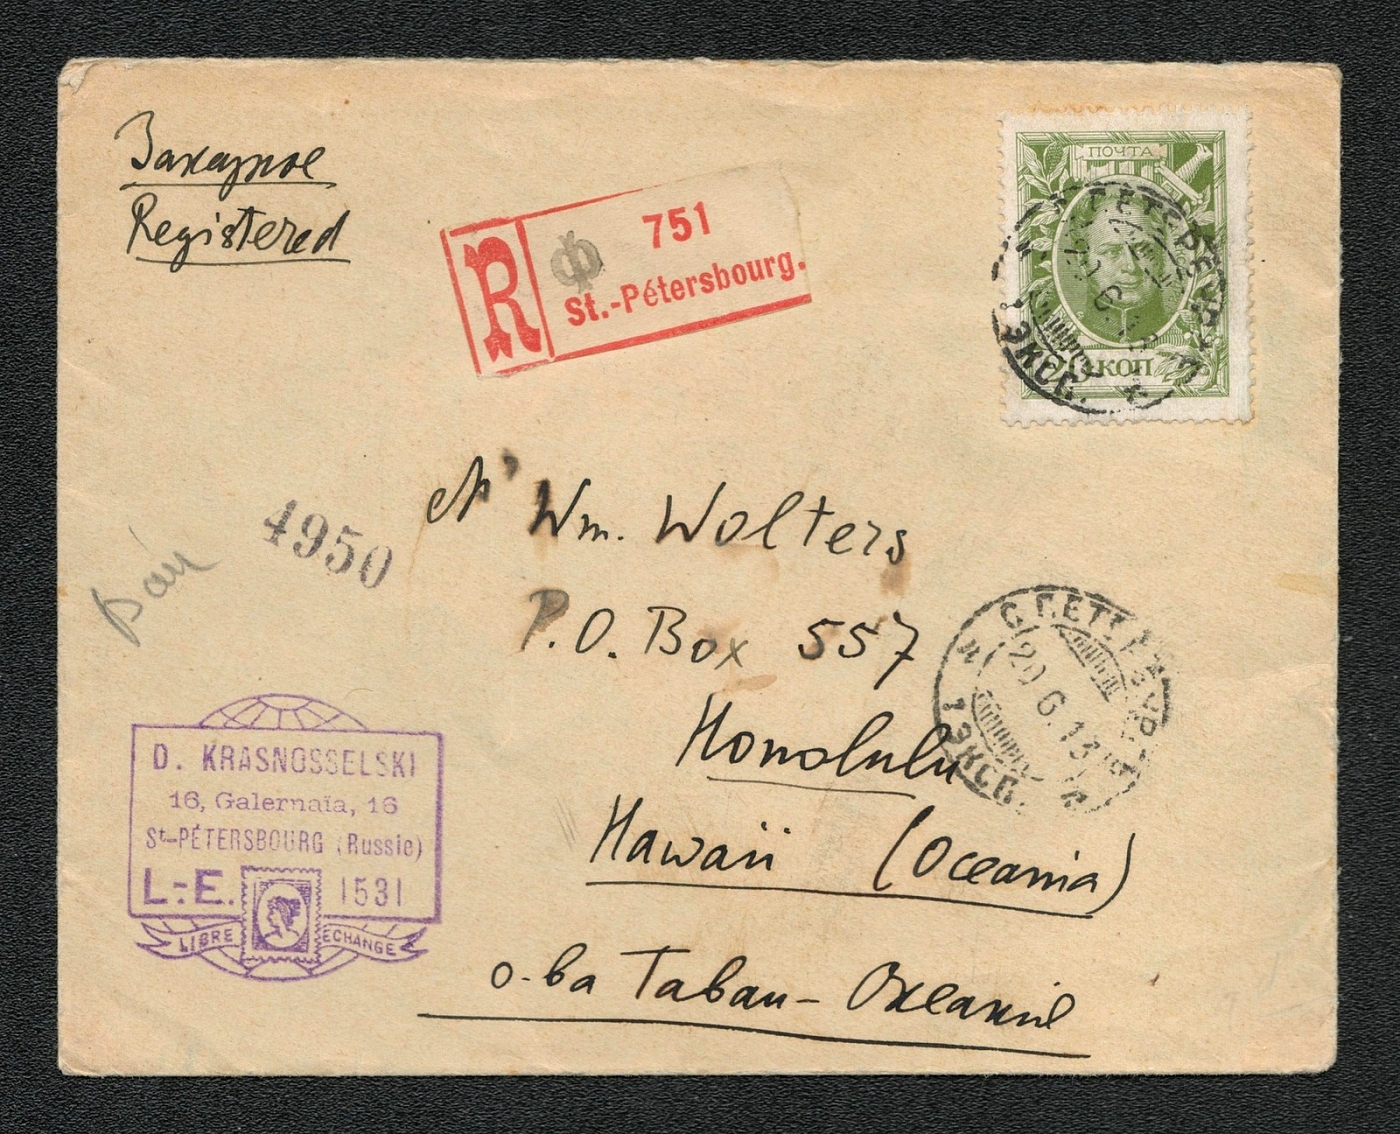 Заказное
Registered
R
Ф
751
St.-Pétersbourg.
ПОЧТА
20 КОП
Mr Wm. Wolters
P.O. Box 557
Honolulu
Hawaii (Oceania)
о-ва Гаваи - Океанiя
4950
С.ПЕТЕРБУРГЪ
20 6.13
1 ЭКСП.
D. KRASNOSSELSKI
16, Galernaïa, 16
St-PÉTERSBOURG (Russie)
L.-E. 1531
LIBRE ECHANGE